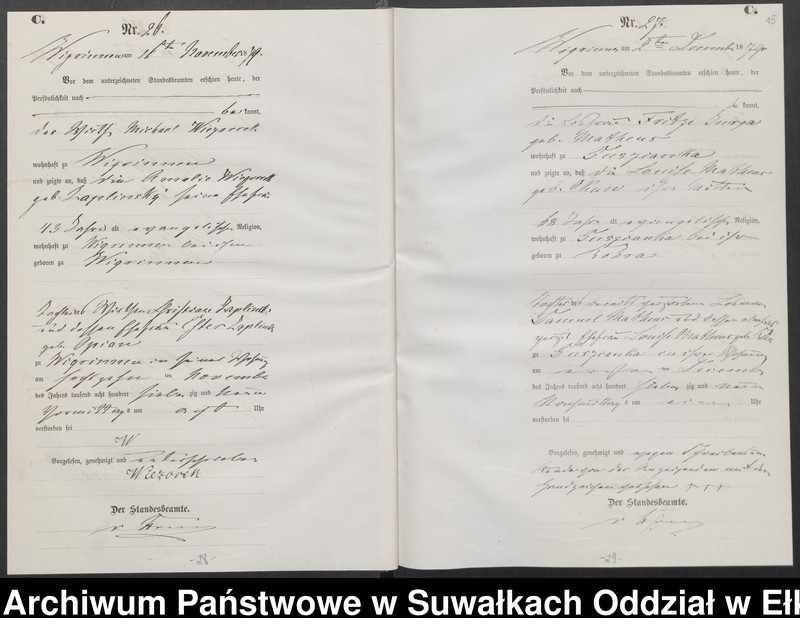 C.
Nr. 26.
Wigrinnen am 16ten November 1879.
Vor dem unterzeichneten Standesbeamten erschien heute, der
Persönlichkeit nach
be kannt,
der Wirth Michael Wiezorek
wohnhaft zu Wigrinnen
und zeigte an, daß die Amalie Wiezorek
geb. Zaplinsky seine Ehefrau
43 Jahre alt evangelischer Religion,
wohnhaft zu Wigrinnen bei ihm
geboren zu Wigrinnen
Tochter des Wirthen
und dessen Ehefrau
geb.
zu Wigrinnen in seiner Wohnung
am sechszehn ten November
des Jahres tausend acht hundert sieben zig und neun
Vormittags um acht Uhr
verstorben sei
Vorgelesen, genehmigt und unterschrieben
Wiezorek
Der Standesbeamte.
-28-
C.
15
Nr. 27.
Wigrinnen am 2ten December 1879
Vor dem unterzeichneten Standesbeamten erschien heute, der
Persönlichkeit nach
be kannt,
die
geb. Matheus
wohnhaft zu Guszianka
und zeigte an, daß die Louise Matheus
geb. ihre Mutter
68 Jahre alt evangelischer Religion,
wohnhaft zu Guszianka bei ihr
geboren zu
Tochter des
Samuel Matheus und dessen
Ehefrau Louise Matheus geb.
zu Guszianka in ihrer Wohnung
am ersten December
des Jahres tausend acht hundert sieben zig und neun
Nachmittags um ein Uhr
verstorben sei
Vorgelesen, genehmigt und wegen Schreibens
von der Anzeigenden mit den
Handzeichen versehen + + +
Der Standesbeamte.
-29-
Archiwum Państwowe w Suwałkach Oddział w Ełk